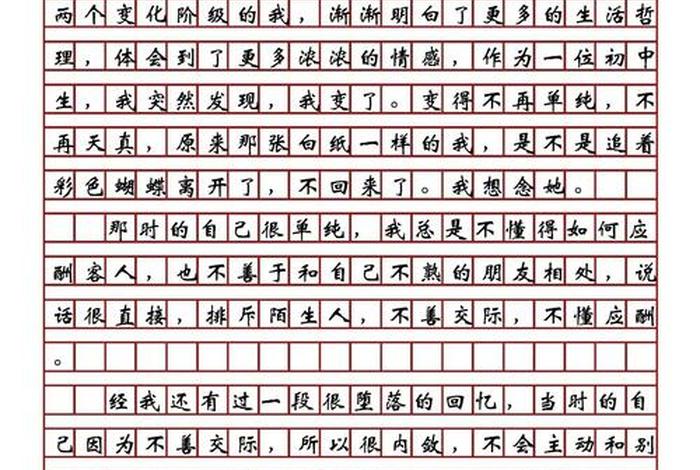 两个变化阶级的我，渐渐明白了更多的生活哲
理，体会到了更多浓浓的情感，作为一位初中
生，我突然发现，我变了。变得不再单纯，不
再天真，原来那张白纸一样的我，是不是追着
彩色蝴蝶离开了，不回来了。我想念她。
那时的自己很单纯，我总是不懂得如何应
酬客人，也不善于和自己不熟的朋友相处，说
话很直接，排斥陌生人，不善交际，不懂应酬
。
经我还有过一段很堕落的回忆，当时的自
己因为不善交际，所以很内敛，不会主动和别